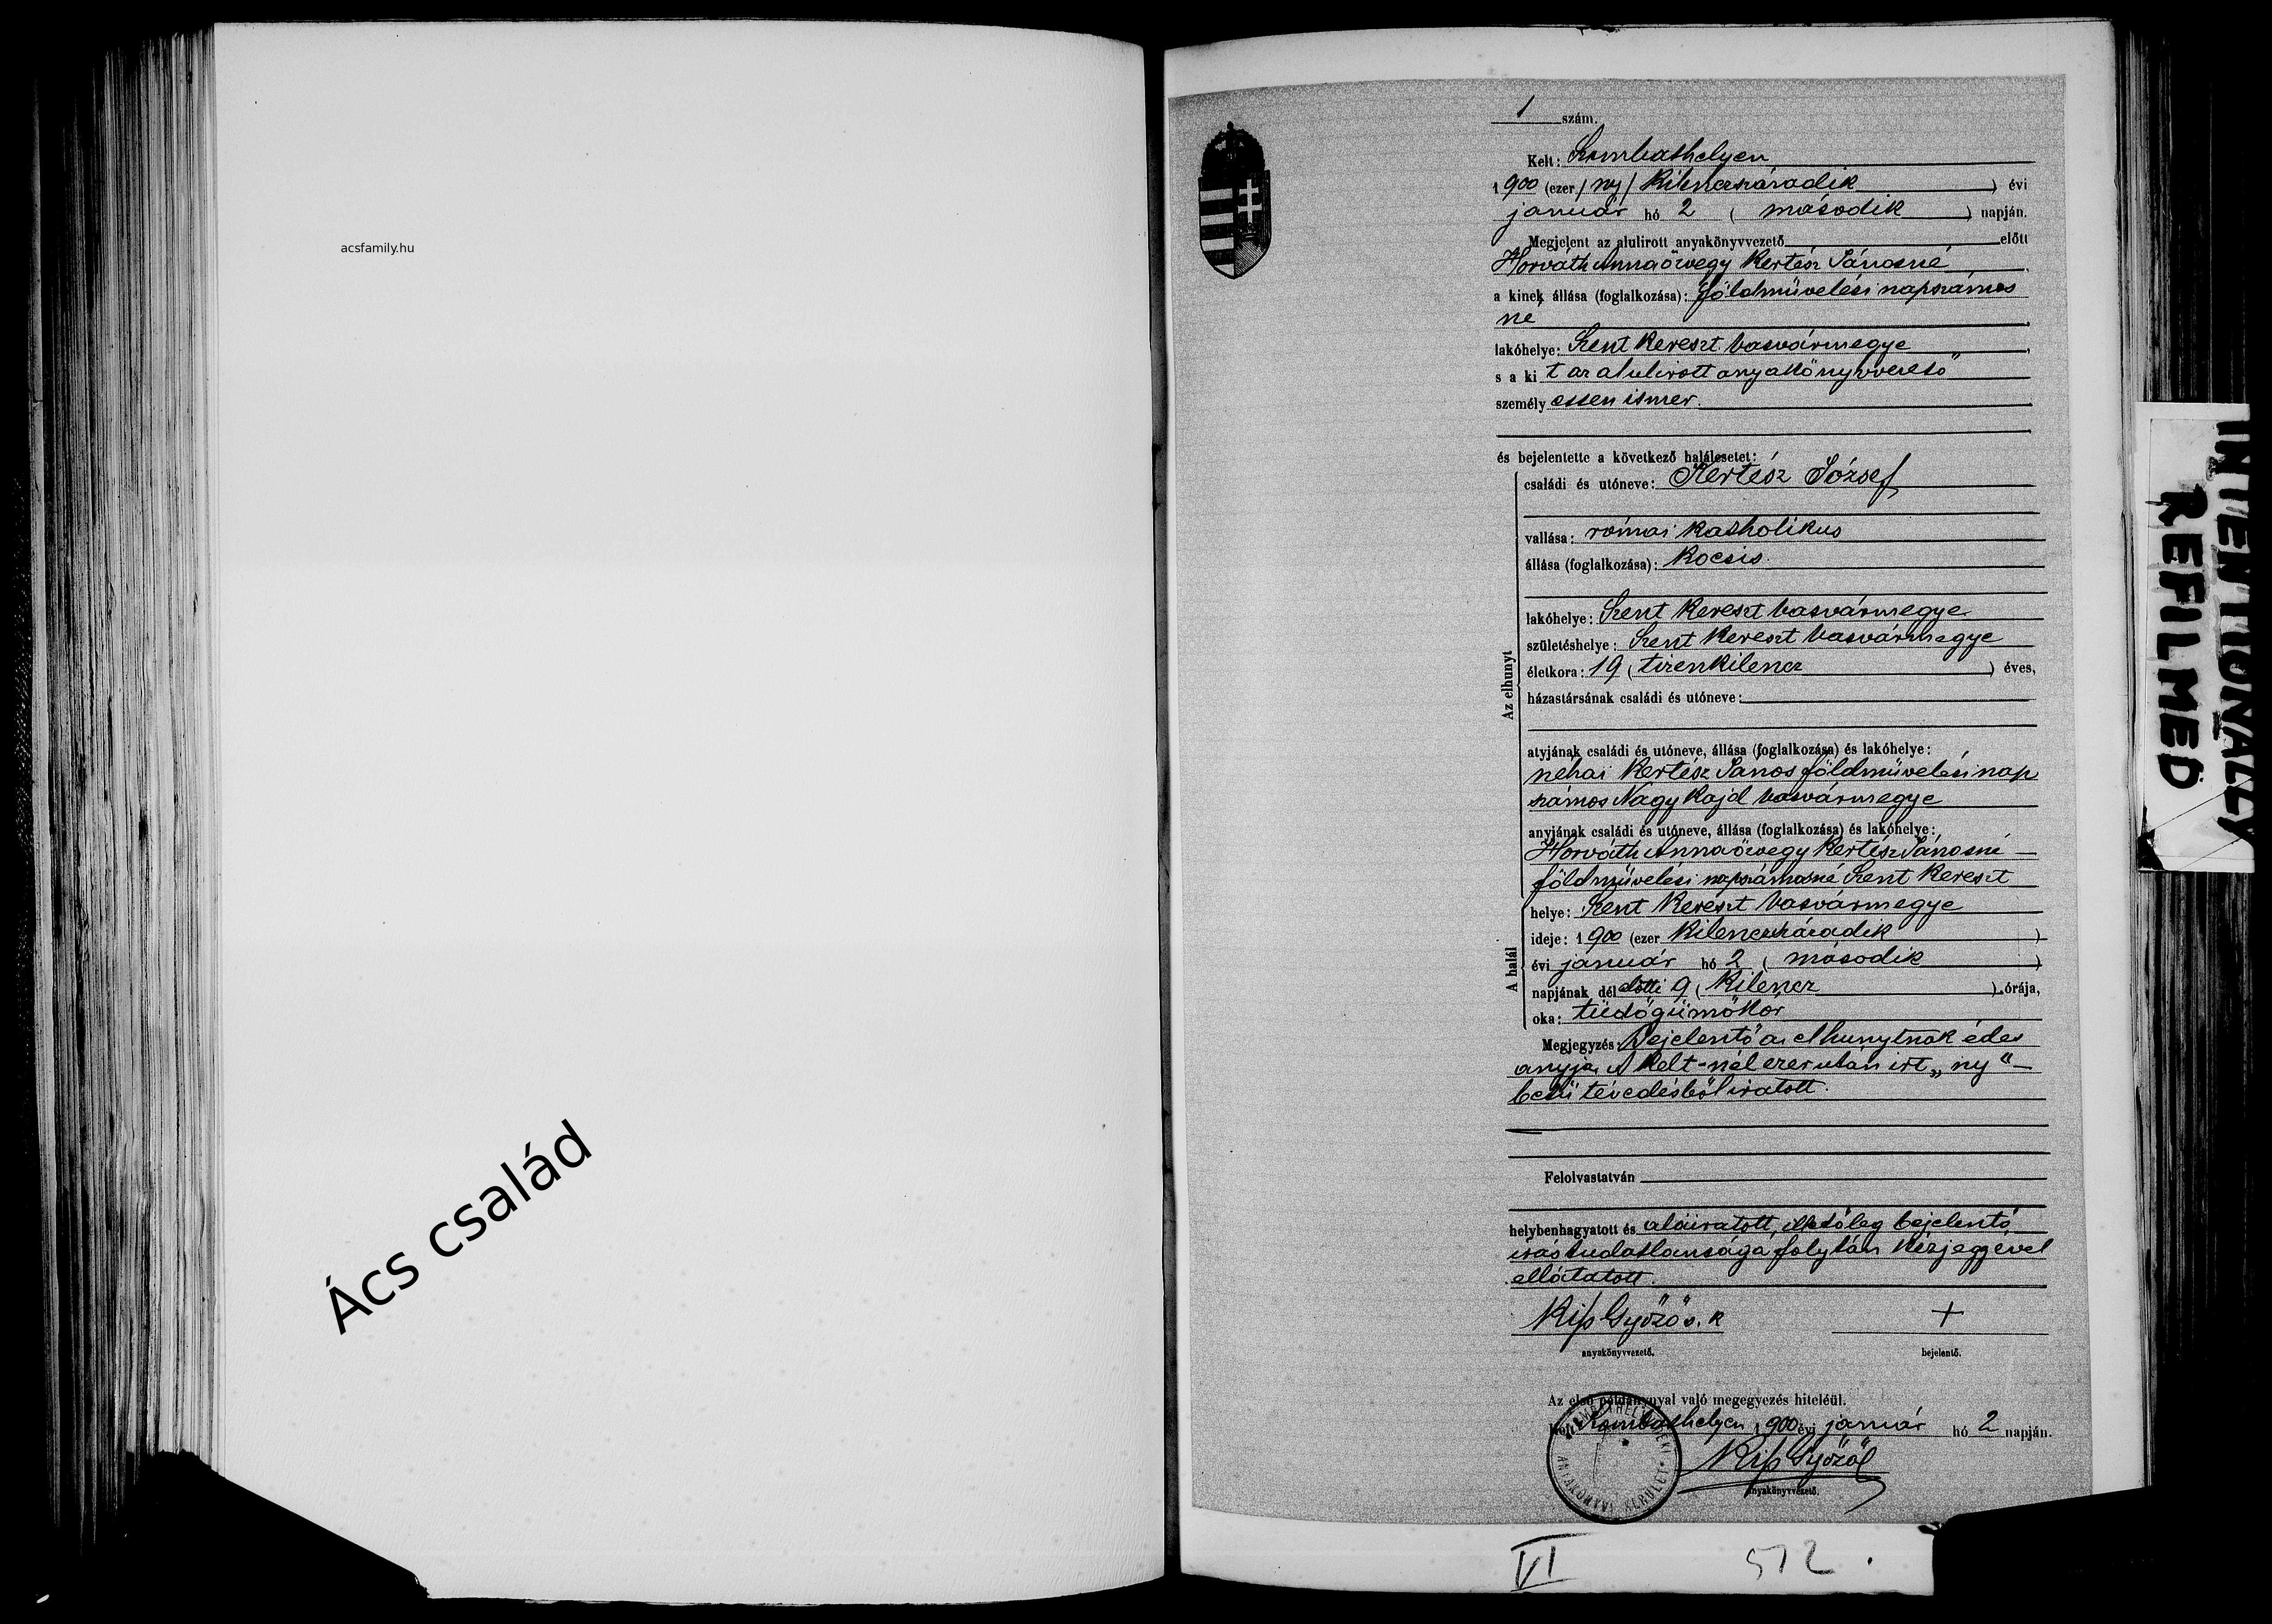 acsfamily.hu
Ács család
1 szám.
Kelt: Szombathelyen
1900 (ezer / ny / kilenczszáradik ) évi
január hó 2 ( második ) napján.
Megjelent az alulirott anyakönyvvezető előtt
Horváth Anna özvegy Kertész Jánosné
a kinek állása (foglalkozása): földmüvelési napszámos
né
lakóhelye: Szent Kereszt vasvármegye
s a ki t az alulirott anyakönyvvezető
személy essen ismer.
és bejelentette a következő halálesetet:
családi és utóneve: Kertész József
vallása: római katholikus
állása (foglalkozása): kocsis.
Az elhunyt
lakóhelye: Szent Kereszt vasvármegye
születéshelye: Szent Kereszt vasvármegye
életkora: 19 ( tizenkilencz ) éves,
házastársának családi és utóneve:
atyjának családi és utóneve, állása (foglalkozása) és lakóhelye:
néhai Kertész János földmüvelési nap
számos Nagy Kajd vasvármegye
anyjának családi és utóneve, állása (foglalkozása) és lakóhelye:
Horváth Anna özvegy Kertész Jánosné –
földmüvelési napszámosné Szent Kereszt
A halál
helye: Szent Kereszt vasvármegye
ideje: 1900 (ezer kilenczszáradik )
évi január hó 2 ( második )
napjának dél előtti 9 ( kilencz ) órája,
oka: tüdőgümőkór
Megjegyzés: Bejelentő az elhunytnak édes
anyja. A kelt-nél ezer után irt „ny" –
betü tévedésből iratott.
Felolvastatván
helybenhagyatott és aláiratott, illetőleg bejelentő
irástudatlansága folytán kézjegyével
ellátatott.
Kiss Győző s. k +
anyakönyvvezető. bejelentő.
Az első példánynyal való megegyezés hiteléül.
Kelt Szombathelyen 1900 évi január hó 2 napján.
Kiss Győző
anyakönyvvezető.
ANYAKÖNYVI KERÜLET
VI 572.
INTENTIONALLY
REFILMED